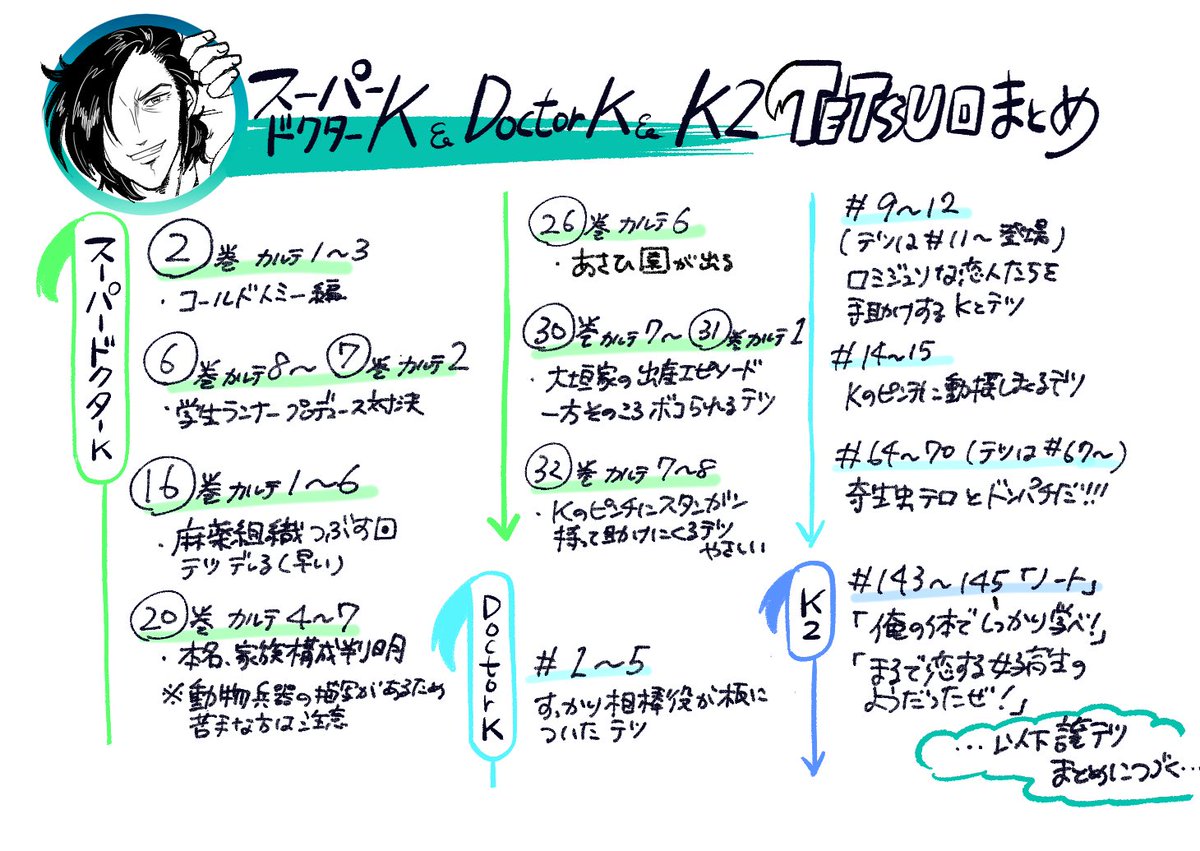 スーパー
ドクターK & DoctorK & K2 TETSU回まとめ
スーパードクターK
2巻 カルテ1〜3
・コールドトミー編
6巻カルテ8〜7巻カルテ2
・学生ランナープロデュース対決
16巻カルテ1〜6
・麻薬組織つぶす回
テツデレる(早い)
20巻 カルテ4〜7
・本名、家族構成判明
※動物兵器の描写があるため
苦手な方は注意
26巻 カルテ6
・あさひ園が出る
30巻カルテ7〜31巻カルテ1
・大垣家の出産エピソード
一方そのころボコられるテツ
32巻 カルテ7〜8
・Kのピンチにスタンガン
持って助けにくるテツ
やさしい
DoctorK
#1〜5
すっかり相棒役が板に
ついたテツ
#9〜12
(テツは#11〜登場)
ロミジュリな恋人たちを
手助けするKとテツ
#14〜15
Kのピンチに動揺しまくるテツ
#64〜70(テツは#67〜)
寄生虫テロとドンパチだ!!!
K2
#143〜145「ノート」
「俺の体でしっかり学べ!」
「まるで恋する女子高生の
ようだったぜ!」
…以下譲テツ
まとめにつづく…